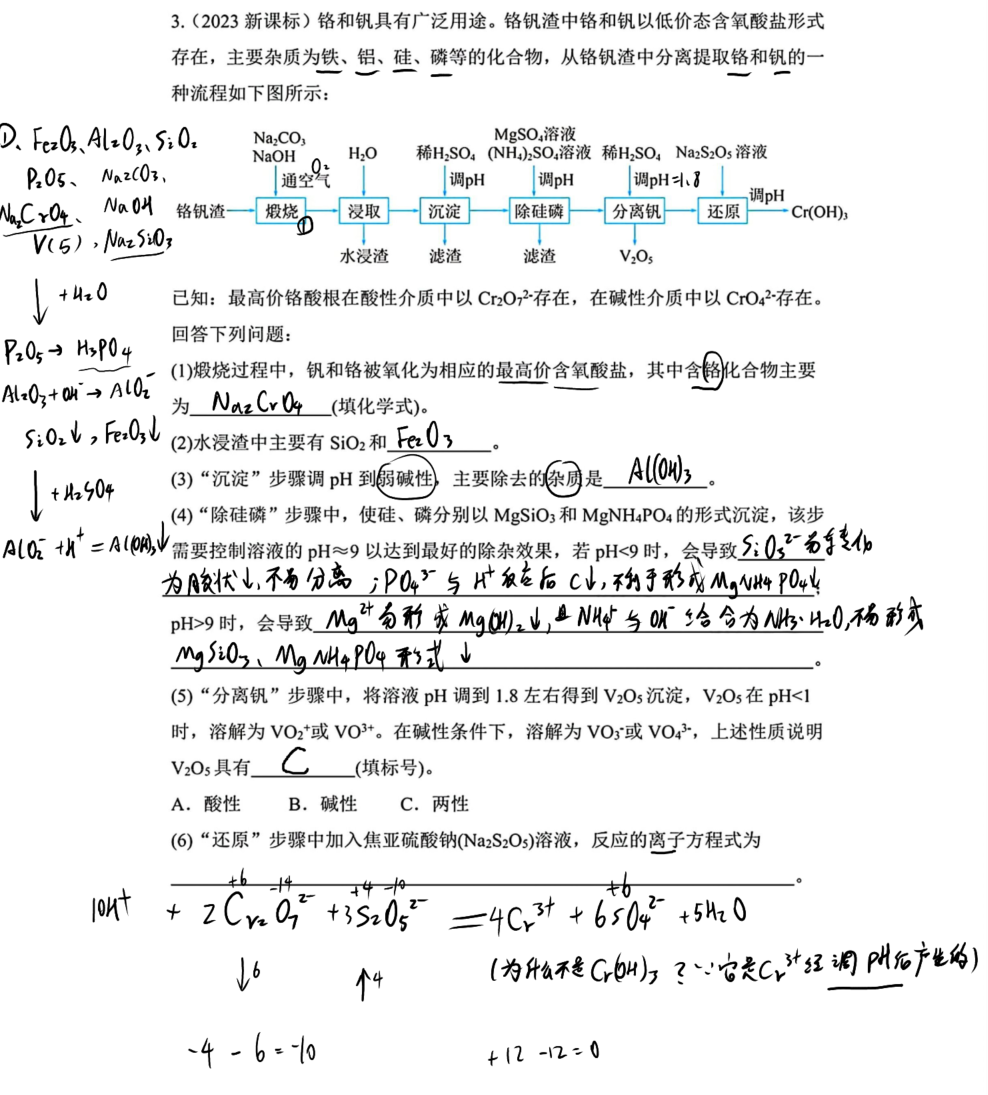 3.（2023 新课标）铬和钒具有广泛用途。铬钒渣中铬和钒以低价态含氧酸盐形式
存在，主要杂质为铁、铝、硅、磷等的化合物，从铬钒渣中分离提取铬和钒的一
种流程如下图所示：
①、Fe₂O₃、Al₂O₃、SiO₂
P₂O₅、Na₂CO₃、
Na₂CrO₄、NaOH
V(5)，Na₂SiO₃
↓ +H₂O
P₂O₅→H₃PO₄
Al₂O₃+OH⁻→AlO₂⁻
SiO₂↓，Fe₂O₃↓
↓ +H₂SO₄
AlO₂⁻+H⁺=Al(OH)₃↓
Na₂CO₃
NaOH
通空气 O₂
H₂O
稀H₂SO₄
调pH
MgSO₄溶液
(NH₄)₂SO₄溶液
调pH
稀H₂SO₄
调pH=1.8
Na₂S₂O₅ 溶液
铬钒渣 煅烧 浸取 沉淀 除硅磷 分离钒 还原 调pH Cr(OH)₃
①
水浸渣 滤渣 滤渣 V₂O₅
已知：最高价铬酸根在酸性介质中以 Cr₂O₇²⁻存在，在碱性介质中以 CrO₄²⁻存在。
回答下列问题：
(1)煅烧过程中，钒和铬被氧化为相应的最高价含氧酸盐，其中含铬化合物主要
为 Na₂CrO₄ (填化学式)。
(2)水浸渣中主要有 SiO₂ 和 Fe₂O₃ 。
(3)“沉淀”步骤调 pH 到弱碱性，主要除去的杂质是 Al(OH)₃ 。
(4)“除硅磷”步骤中，使硅、磷分别以 MgSiO₃ 和 MgNH₄PO₄ 的形式沉淀，该步
需要控制溶液的 pH≈9 以达到最好的除杂效果，若 pH<9 时，会导致 SiO₃²⁻易转化
为胶状↓，不易分离；PO₄³⁻与H⁺反应后C↓，不利于形成MgNH₄PO₄↓
pH>9 时，会导致 Mg²⁺易形成Mg(OH)₂↓，且NH₄⁺与OH⁻结合为NH₃·H₂O，不易形成
MgSiO₃、MgNH₄PO₄形式↓ 。
(5)“分离钒”步骤中，将溶液 pH 调到 1.8 左右得到 V₂O₅ 沉淀，V₂O₅ 在 pH<1
时，溶解为 VO₂⁺或 VO³⁺。在碱性条件下，溶解为 VO₃⁻或 VO₄³⁻，上述性质说明
V₂O₅ 具有 C (填标号)。
A．酸性 B．碱性 C．两性
(6)“还原”步骤中加入焦亚硫酸钠(Na₂S₂O₅)溶液，反应的离子方程式为
。
+6 -14 +4 -10 +6
10H⁺ + 2Cr₂O₇²⁻ +3S₂O₅²⁻ =4Cr³⁺ + 6SO₄²⁻ +5H₂O
↓6 ↑4 (为什么不是Cr(OH)₃？∵它是Cr³⁺经调pH后产生的)
-4 - 6 = -10 +12 -12 = 0